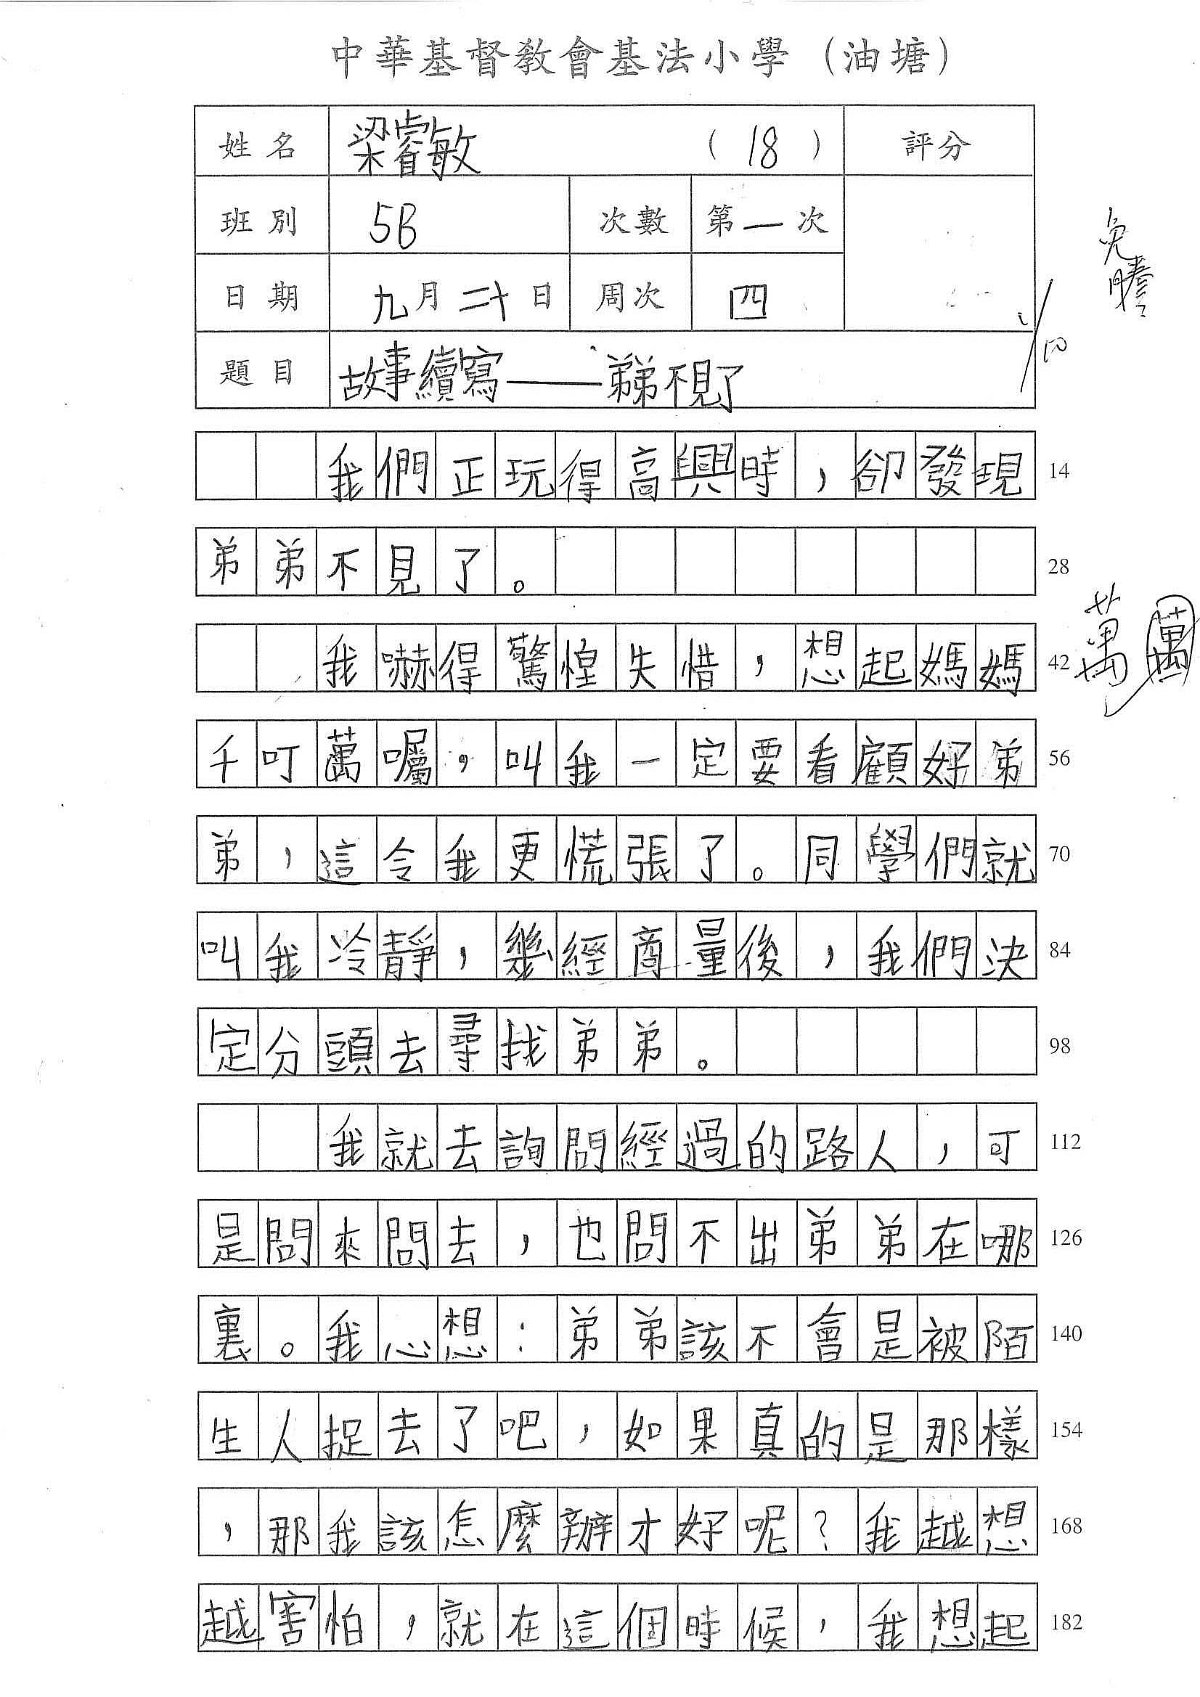 中華基督教會基法小學（油塘）
姓名 梁睿敏 （18） 評分
班別 5B 次數 第一次
日期 九月二十日 周次 四
10
題目 故事續寫——弟弟不見了
我們正玩得高興時，卻發現 14
弟弟不見了。 28
我嚇得驚惶失惜，想起媽媽 42
萬 萬
千叮萬囑，叫我一定要看顧好弟 56
弟，這令我更慌張了。同學們就 70
叫我冷靜，幾經商量後，我們決 84
定分頭去尋找弟弟。 98
我就去詢問經過的路人，可 112
是問來問去，也問不出弟弟在哪 126
裏。我心想：弟弟該不會是被陌 140
生人捉去了吧，如果真的是那樣 154
，那我該怎麼辦才好呢？我越想 168
越害怕，就在這個時候，我想起 182